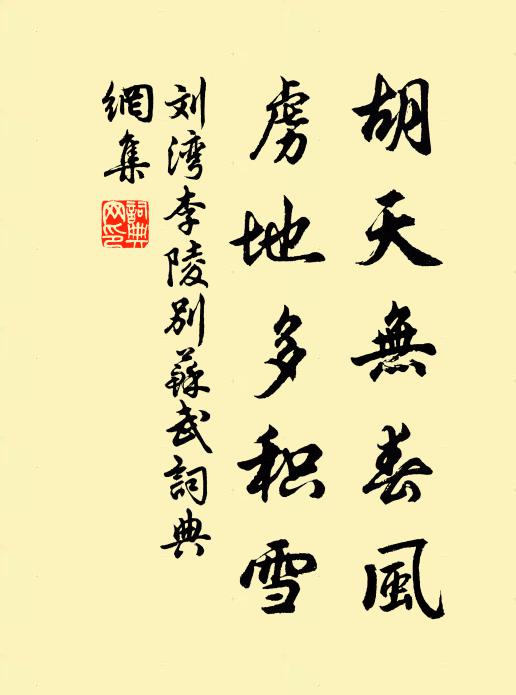 胡天無春風
虏地多积雪
刘湾李陵别蘇武詞典
網集
詞典
网印